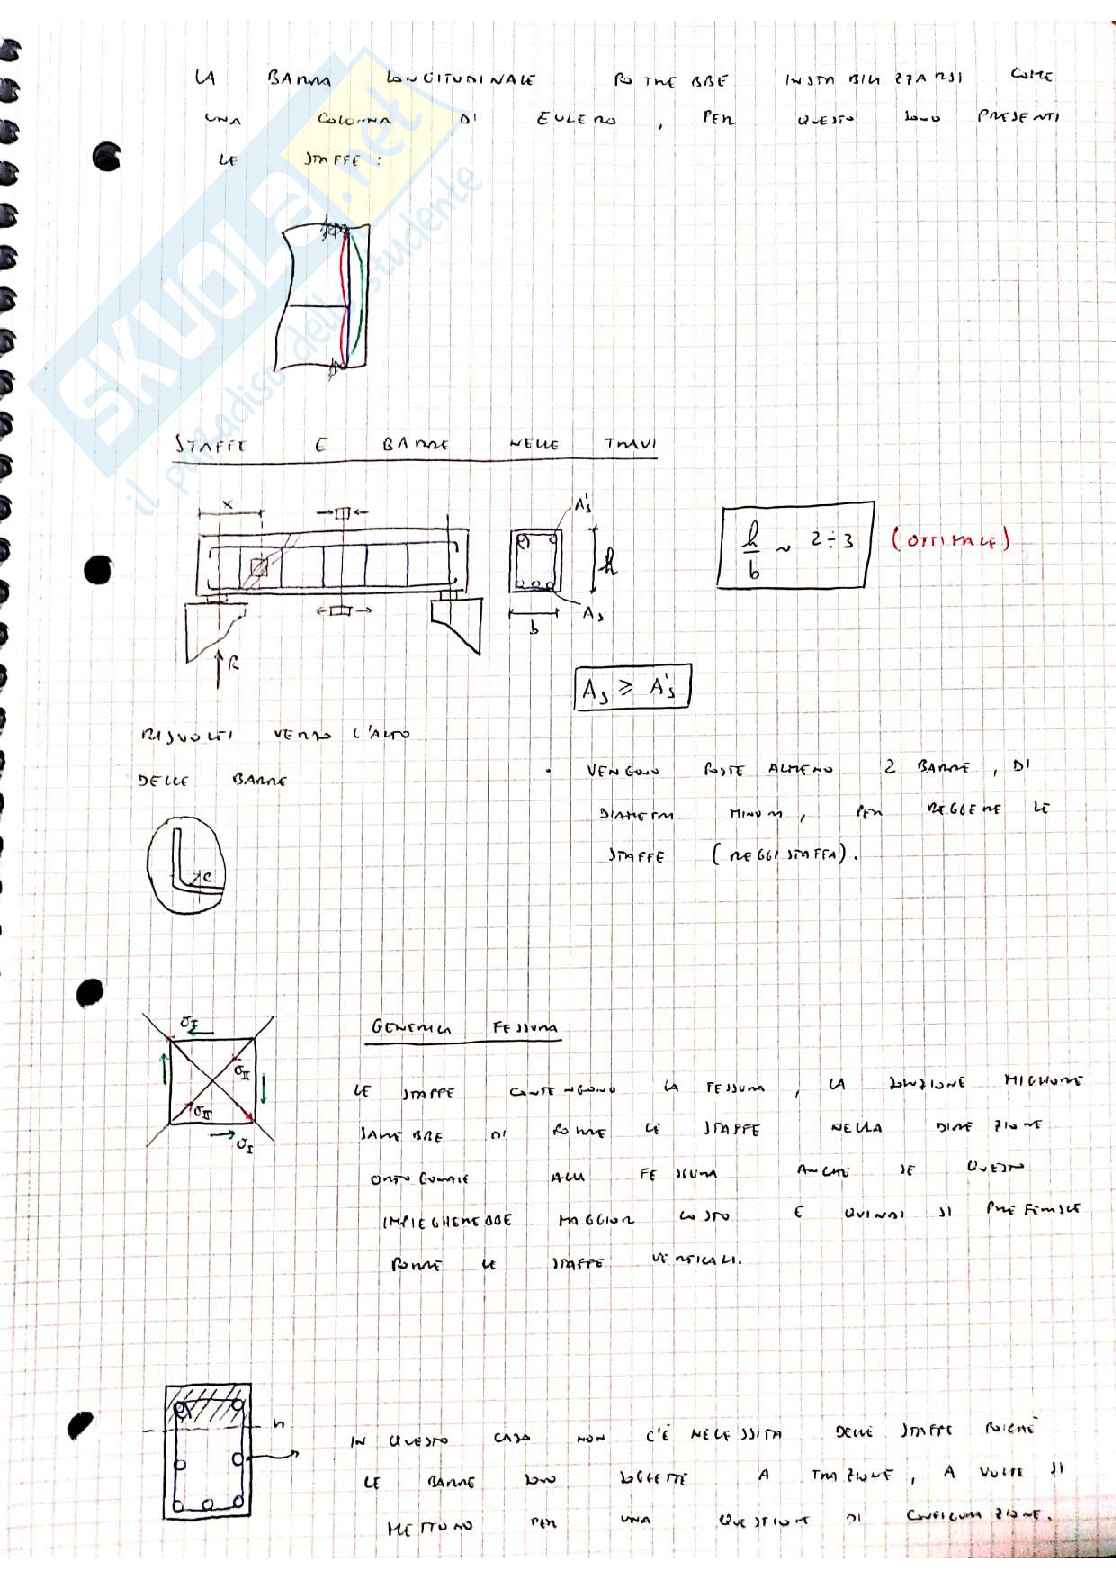 LA BARRA LONGITUDINALE POTREBBE INSTABILIZZARSI COME
UNA COLONNA DI EULERO, PER QUESTO SONO PRESENTI
LE STAFFE:
SKUOLA.net
il paradiso dello studente
STAFFE E BARRE NELLE TRAVI
x
A's
h
b
As
R
h/b ~ 2÷3 (OTTIMALE)
As ≥ A's
RISVOLTI VERSO L'ALTO
DELLE BARRE
• VENGONO POSTE ALMENO 2 BARRE, DI
DIAMETRI MINIMI, PER REGGERE LE
STAFFE (REGGISTAFFA).
σI
σII
σII
σI
GENERICA FESSURA
LE STAFFE CONTENGONO LA FESSURA, LA SOLUZIONE MIGLIORE
SAREBBE DI PORRE LE STAFFE NELLA DIREZIONE
ORTOGONALE ALLA FESSURA ANCHE SE QUESTO
IMPIEGHEREBBE MAGGIOR COSTO E QUINDI SI PREFERISCE
PORRE LE STAFFE VERTICALI.
n
IN QUESTO CASO NON C'È NECESSITÀ DELLE STAFFE POICHÈ
LE BARRE SONO SOGGETTE A TRAZIONE, A VOLTE SI
METTONO PER UNA QUESTIONE DI CONFIGURAZIONE.